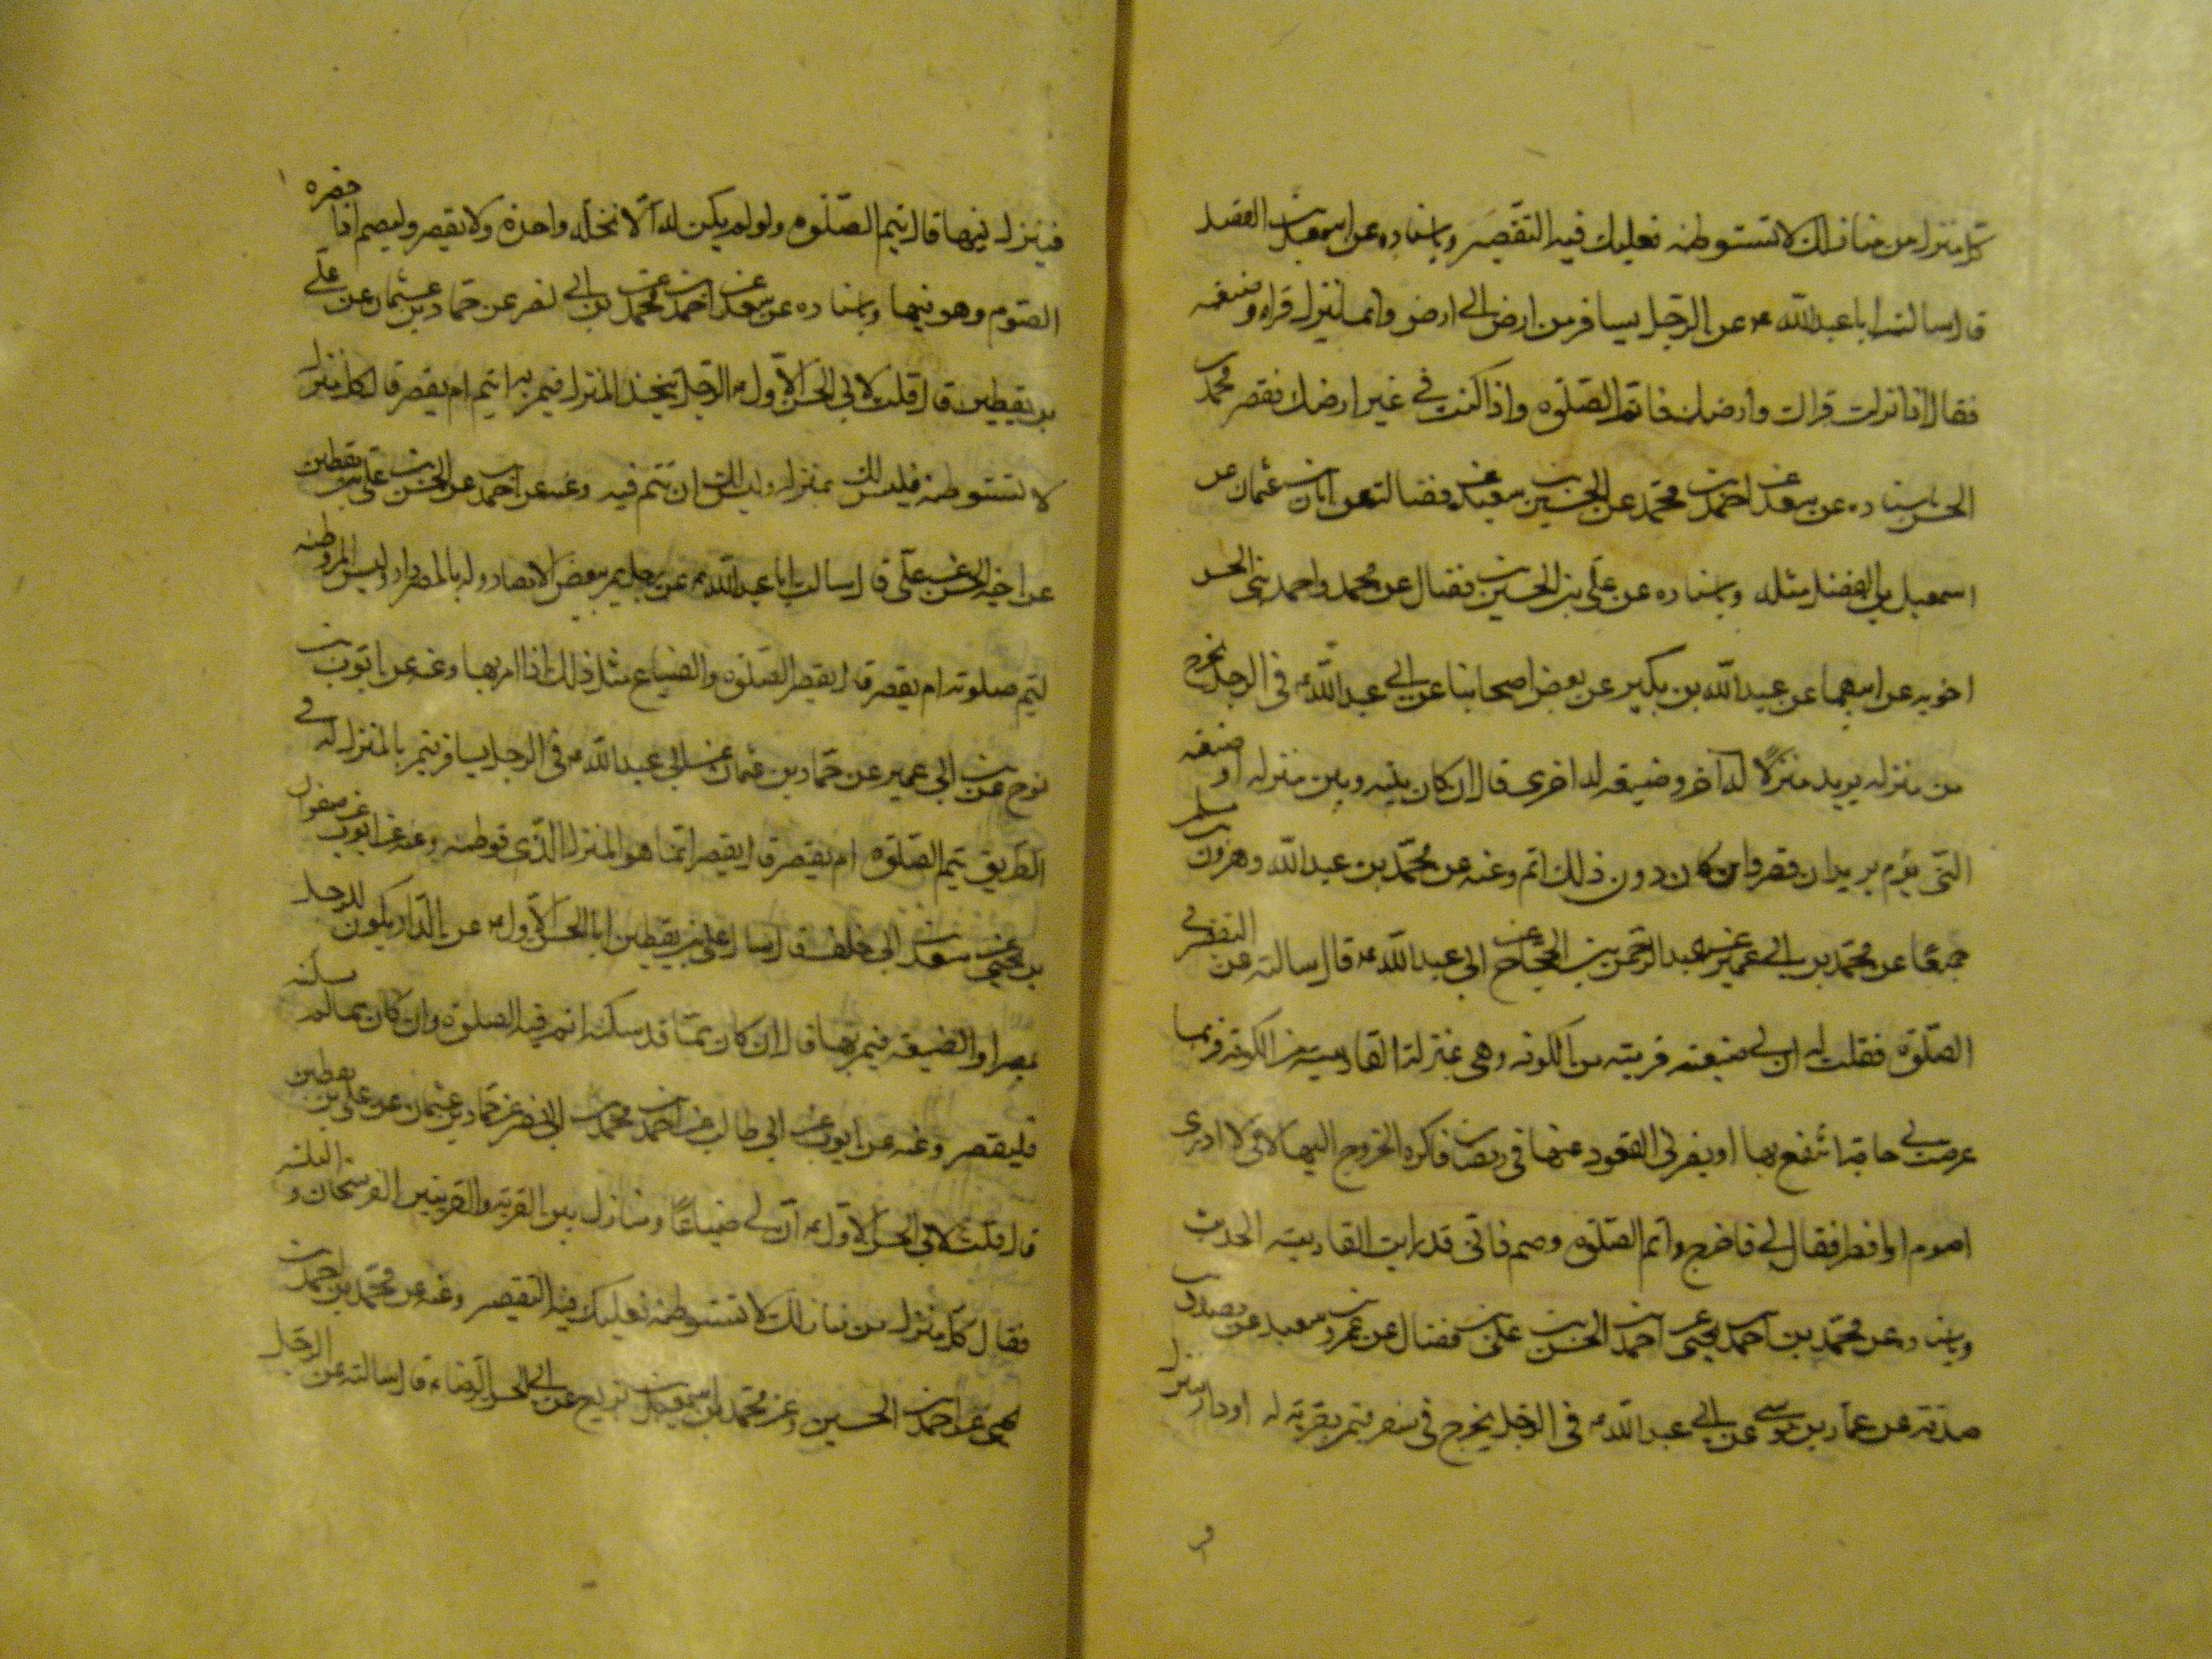 كل منزل من منازلك لا تستوطنه فعليك فيه التقصير وباسناده عن سعد عن اسمعيل بن الفضل
قال سالت ابا عبد الله ع عن الرجل يسافر من ارض الى ارض وانما ينزل قراه وضيعته
فقال اذا نزلت قراك وارضك فاتم الصلوة واذا كنت في غير ارضك فقصر محمد بن
الحسن باسناده عن سعد عن احمد بن محمد عن الحسين بن سعيد عن فضالة عن ابان بن عثمان عن
اسمعيل بن الفضل مثله وباسناده عن علي بن الحسن بن فضال عن محمد واحمد بني الحسن
اخويه عن ابيهما عن عبد الله بن بكير عن بعض اصحابنا عن ابي عبد الله ع في الرجل يخرج
من منزله يريد منزلا له آخر وضيعة له اخرى قال ان كان بينه وبين منزله او ضيعته
التي يؤم بريدان قصر وان كان دون ذلك اتم وعنه عن محمد بن عبد الله وهرون بن مسلم
جميعا عن محمد بن ابي عمير عن عبد الرحمن بن الحجاج عن ابي عبد الله ع قال سالته عن التقصير في
الصلوة فقلت له ان لي ضيعة قريبة من الكوفة وهي بمنزلة القادسية من الكوفة فربما
عرضت لي حاجة انتفع بها او يضر لي القعود عنها في رمضان فاكره الخروج اليها لاني لا ادري
اصوم او افطر فقال لي فاخرج واتم الصلوة وصم فاني قد رايت القادسية الحديث
وباسناده عن محمد بن احمد بن يحيى عن احمد بن الحسن بن علي بن فضال عن عمرو بن سعيد عن مصدق بن
صدقة عن عمار بن موسى عن ابي عبد الله ع في الرجل يخرج في سفر فيمر بقرية له او دار فينزل
فينزل فيها قال يتم الصلوة ولو لم يكن له الا نخلة واحدة ولا يقصر وليصم اذا حضره
الصوم وهو فيها وباسناده عن سعد عن احمد بن محمد عن محمد بن ابي نصر عن حماد بن عثمان عن علي
بن يقطين قال قلت لابي الحسن الاول ع الرجل يتخذ المنزل فيمر به ايتم ام يقصر قال كل منزل
لا تستوطنه فليس لك بمنزل وليس لك ان تتم فيه وعنه عن احمد عن الحسن بن علي بن يقطين
عن اخيه الحسين عن علي قال سالت ابا عبد الله ع عن رجل يمر ببعض الامصار وله بالمصر دار وليس المصر وطنه
ايتم صلوته ام يقصر قال يقصر الصلوة والضياع مثل ذلك اذا مر بها وعنه عن ايوب بن
نوح عن ابن ابي عمير عن حماد بن عثمان عن ابي عبد الله ع في الرجل يسافر فيمر بالمنزل له في
الطريق يتم الصلوة ام يقصر قال يقصر انما هو المنزل الذي توطنه وعنه عن ايوب عن صفوان
بن يحيى عن سعد بن ابي خلف قال سال علي بن يقطين ابا الحسن الاول ع عن الدار يكون للرجل
بمصر او الضيعة فيمر بها قال ان كان مما قد سكنه اتم فيه الصلوة وان كان مما لم يسكنه
فليقصر وعنه عن ايوب عن ابي طالب عن احمد بن محمد بن ابي نصر عن حماد بن عثمان عن علي بن يقطين
قال قلت لابي الحسن الاول ع ان لي ضياعا ومنازل بين القرية والقريتين الفرسخان والثلثة
فقال كل منزل من منازلك لا تستوطنه فعليك فيه التقصير وعنه عن محمد بن احمد بن
يحيى عن احمد بن الحسين وعن محمد بن اسمعيل بن بزيع عن ابي الحسن الرضا ع قال سالته عن الرجل